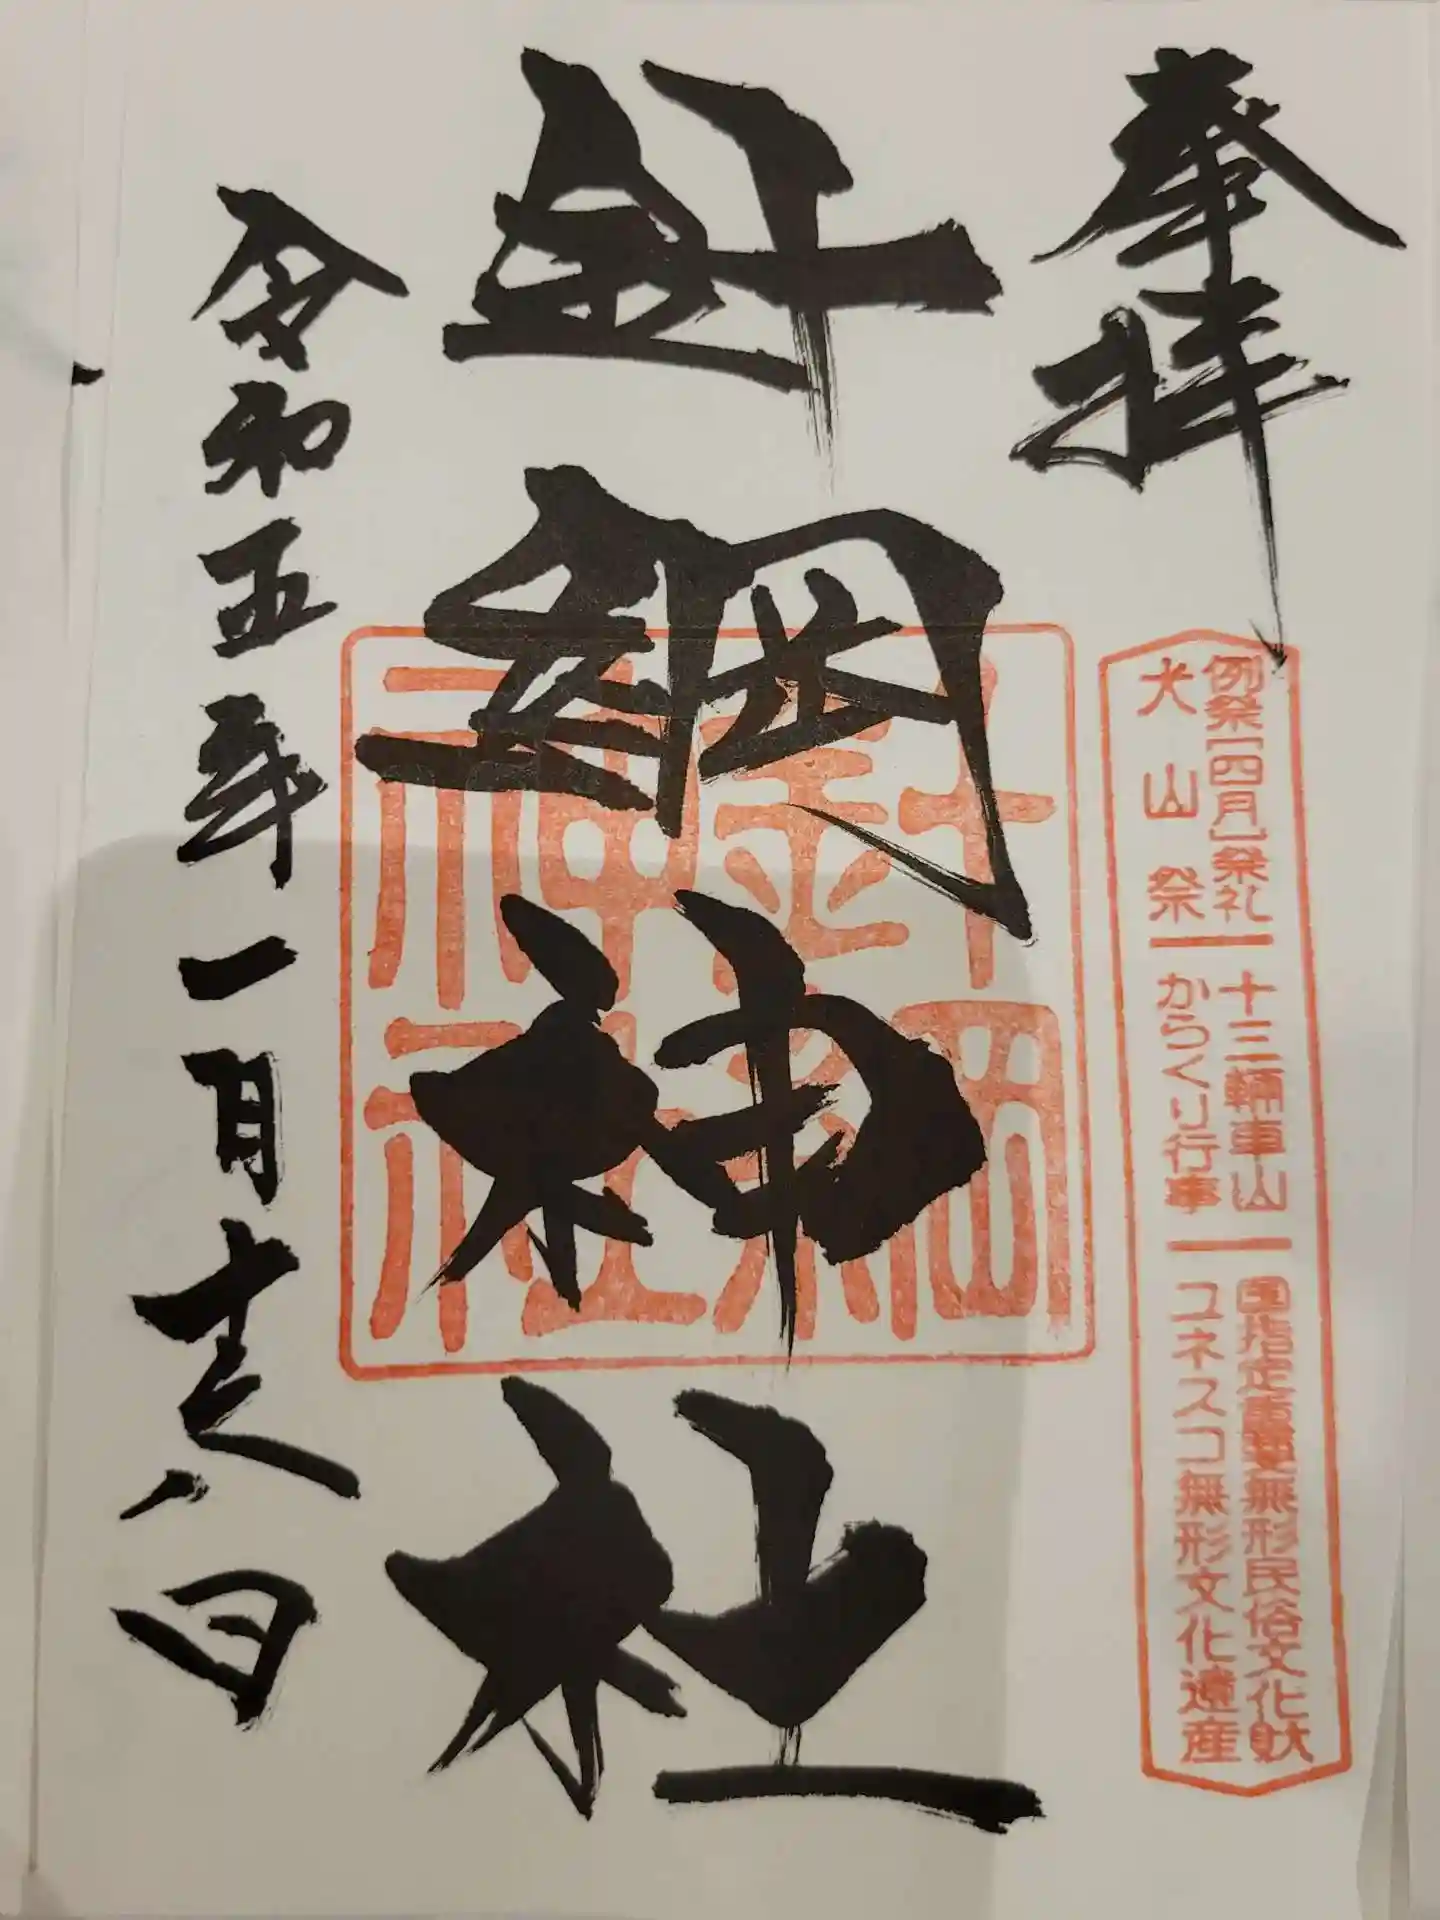 奉拝
例祭[四月]祭礼 十三輛車山 国指定重要無形民俗文化財
犬山祭 からくり行事 ユネスコ無形文化遺産
針綱神社
針綱
神社
令和五年一月廿八日